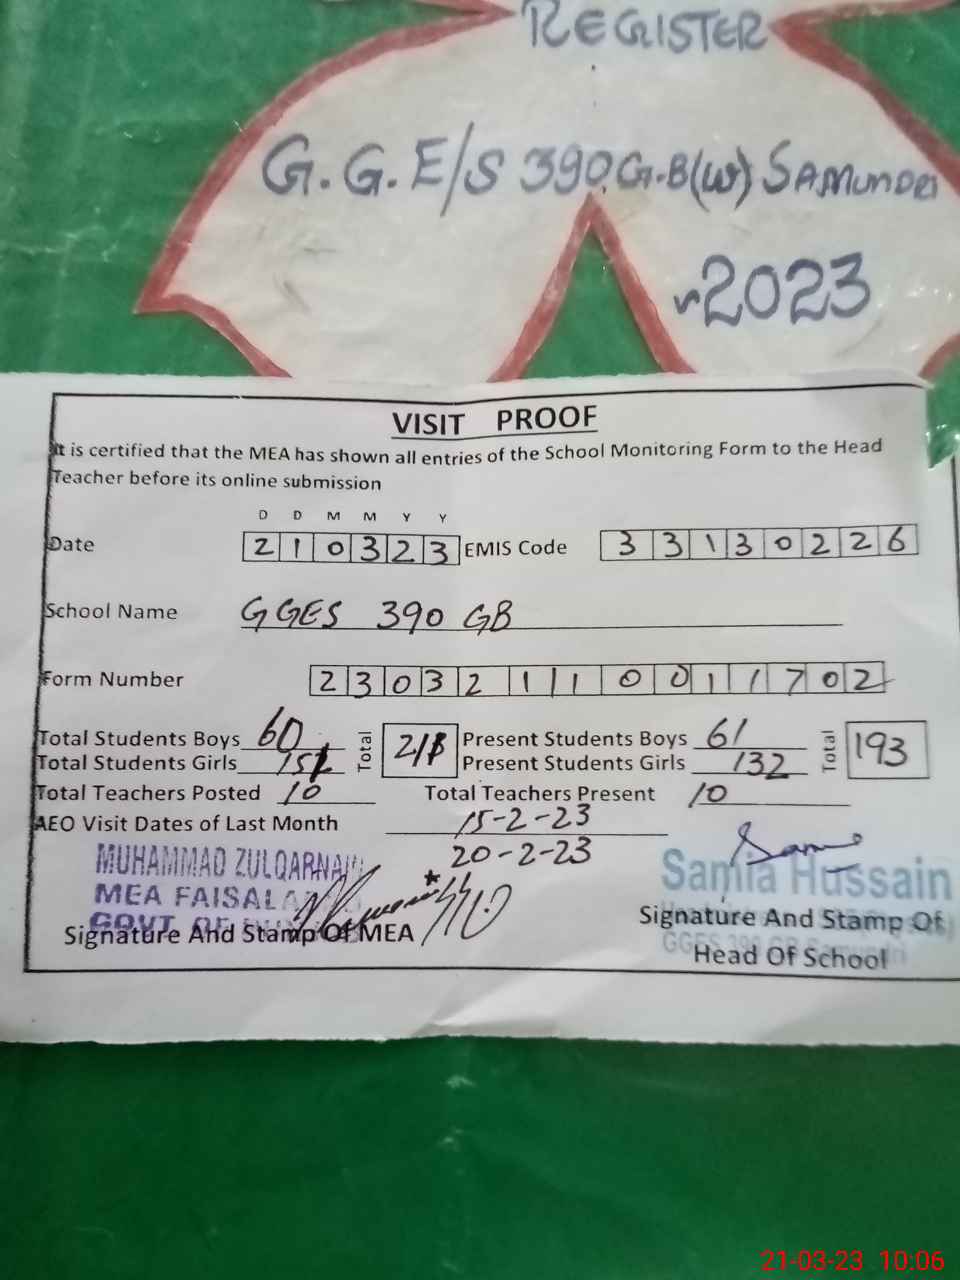 REGISTER
G.G.E/S 390 G.B(W) SAMUNDRI
2023
VISIT PROOF
It is certified that the MEA has shown all entries of the School Monitoring Form to the Head
Teacher before its online submission
D D M M Y Y
Date 2 1 0 3 2 3 EMIS Code 3 3 1 3 0 2 2 6
School Name GGES 390 GB
Form Number 2 3 0 3 2 1 1 0 0 1 1 7 0 2
Total Students Boys 60 Total Present Students Boys 61 Total 193
Total Students Girls Present Students Girls 132
Total Teachers Posted 10 Total Teachers Present 10
AEO Visit Dates of Last Month 15-2-23
20-2-23
MUHAMMAD ZULQARNAIN
MEA FAISALA
GOVT OF
Signature And Stamp Of MEA
Samia Hussain
Signature And Stamp Of
GGES 390 GB Samundri
Head Of School
21-03-23 10:06